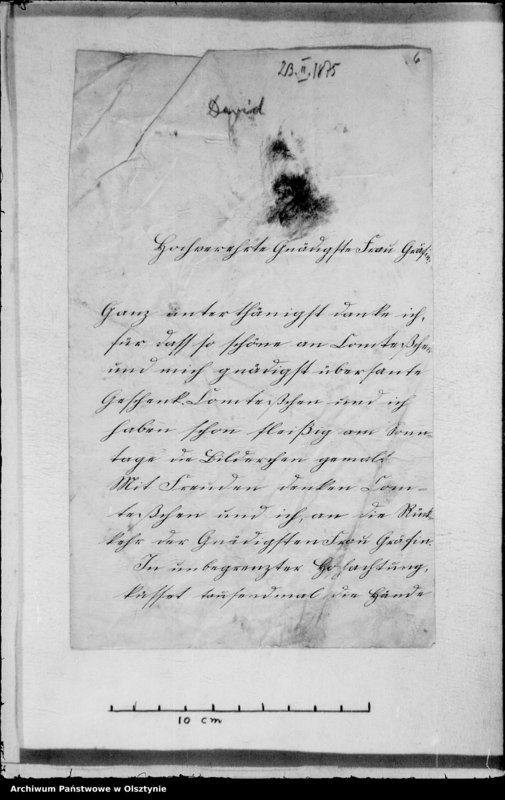 6
23.II.1875
David
Hochverehrte Gnädigste Frau Gräfin,
Ganz unterthänigst danke ich,
für dass so schöne an Comteßchen
und mich gnädigst übersante
Geschenk. Comteßchen und ich
haben schon fleißig am Sonn-
tage die Bilderchen gemalt
Mit Freuden denken Com-
teßchen und ich, an die Rück
kehr der Gnädigsten Frau Gräfin.
In unbegrenzter Hochachtung,
küsset tausendmal die Hände
10 cm
Archiwum Państwowe w Olsztynie